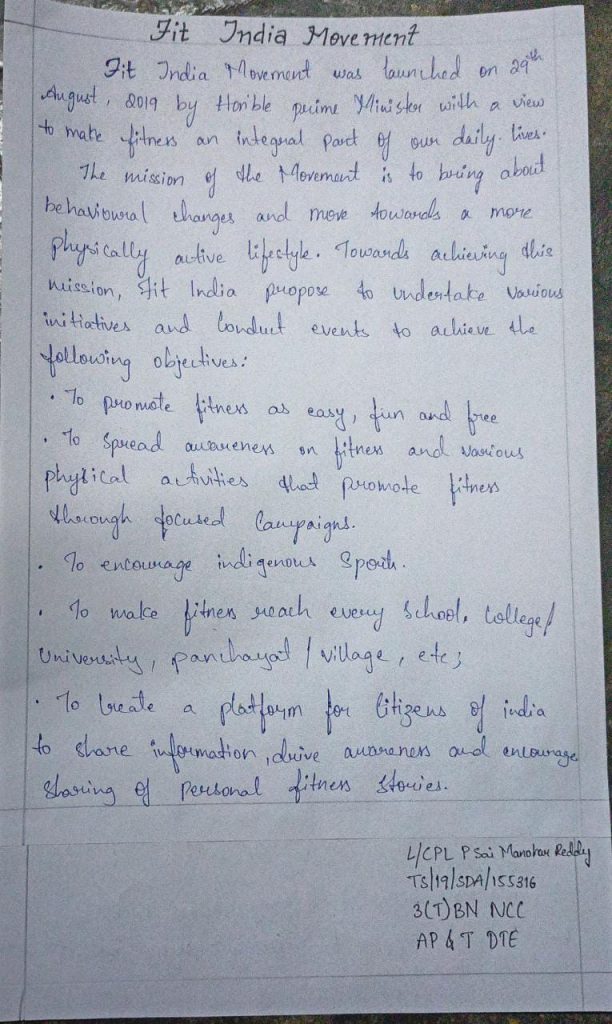 Fit India Movement
Fit India Movement was launched on 29th
August, 2019 by Hon'ble prime Minister with a view
to make fitness an integral part of our daily. lives.
The mission of the Movement is to bring about
behavioural changes and move towards a more
physically active lifestyle. Towards achieving this
mission, Fit India propose to undertake various
initiatives and Conduct events to achieve the
following objectives:
• To promote fitness as easy, fun and free
• To Spread awareness on fitness and various
physical activities that promote fitness
through focused Campaigns.
• To encourage indigenous Sports.
• To make fitness reach every School, College/
University, panchayat / village, etc;
• To Create a platform for Citizens of india
to share information, drive awareness and encourage
Sharing of personal fitness stories.
L/CPL P Sai Manohar Reddy
TS/19/SDA/155316
3(T)BN NCC
AP & T DTE